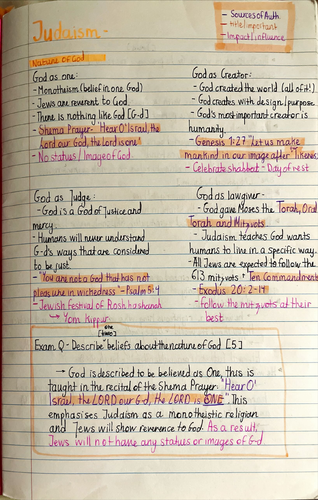 - Sources of Auth
- title/important
- Impact/influence
Judaism -
Nature of God
God as one:
- Monotheism (belief in one God)
- Jews are reverent to God
- There is nothing like God [G-d]
- Shema Prayer- 'Hear O' Israel, the
Lord our God, the lord is one'
- No status/Image of God
God as Creator:
- God created the world (all of it!)
- God creates with design/purpose
- God's most important creator is
humanity.
- Genesis 1:27 'let us make
mankind in our image after
- Celebrate shabbat - Day of rest
God as Judge:
- God is a God of Justice and
mercy.
- Humans will never understand
G-d's ways that are considered
to be just.
'You are not a God that has not
pleasure in wickedness' - Psalm 5:4
- Jewish festival of Rosh hashanah
→ Yom Kippur.
God as lawgiver -
- God gave Moses the Torah, Oral
Torah and Mitzvots
- Judaism teaches God wants
humans to live in a specific way.
- All Jews are expected to follow the
613 mitzvots + Ten Commandments
- Exodus 20:2-14
- Follow the mitzvots at their
best
one
Exam Q - Describe [two] beliefs about the nature of God [5]
→ God is described to be believed as One, this is
taught in the recital of the Shema Prayer "Hear O'
Israel, the LORD our G-d, the LORD is ONE" This
emphasises Judaism as a monotheistic religion
and Jews will show reverence to God. As a result,
Jews will not have any status or images of G-d